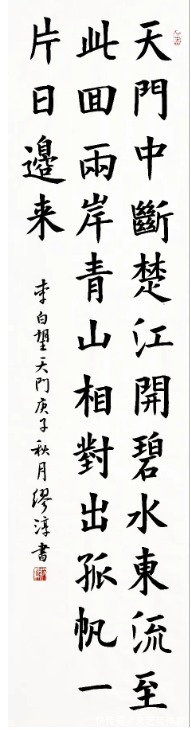 天門中斷楚江開碧水東流至
此回兩岸青山相對出孤帆一
片日邊来
李白望天门庚子秋月缪淳書